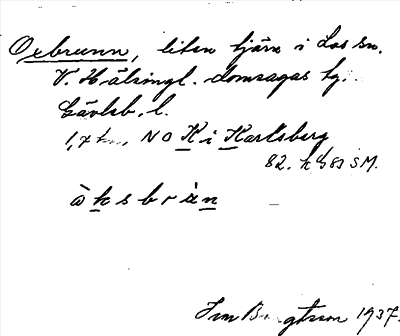 Oxbrunn, liten tjärn i Los sn.
V. Hälsingl. domsagas tg.
Gävleb. l.
1,7 km NO K i Karlsberg
82. k h 83 SM.
à k s b r ù n
1937.